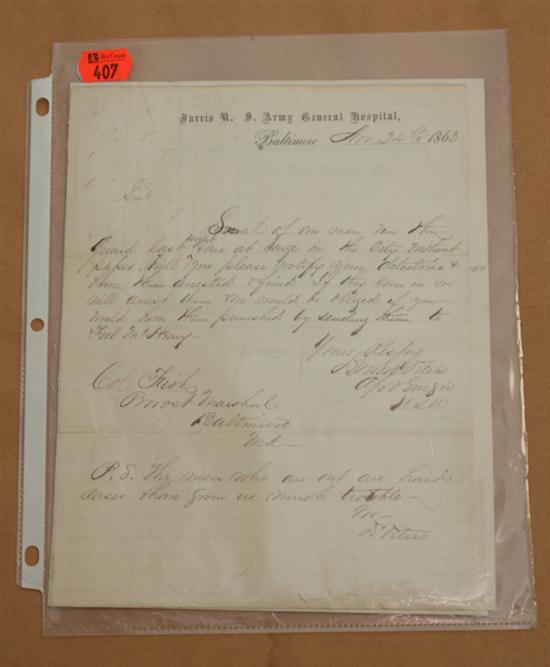 Alex Cooper
407
Jarvis U. S. Army General Hospital,
Baltimore Nov 24th 1863
Sir
Several of our men run the
Guard last night & are at large in the City without
papers. Will you please notify your detectives &
have them arrested & fined. If they come in we
will arrest them & we would be obliged if you
would have them punished by sending them to
Fort McHenry
Yours Respy
DeWitt C Peters
Asst Surgn
USA
Col Fish
Provost Marshal
Baltimore
Md
P.S. The men who are out are hard
cases & have given us much trouble
Dr Peters